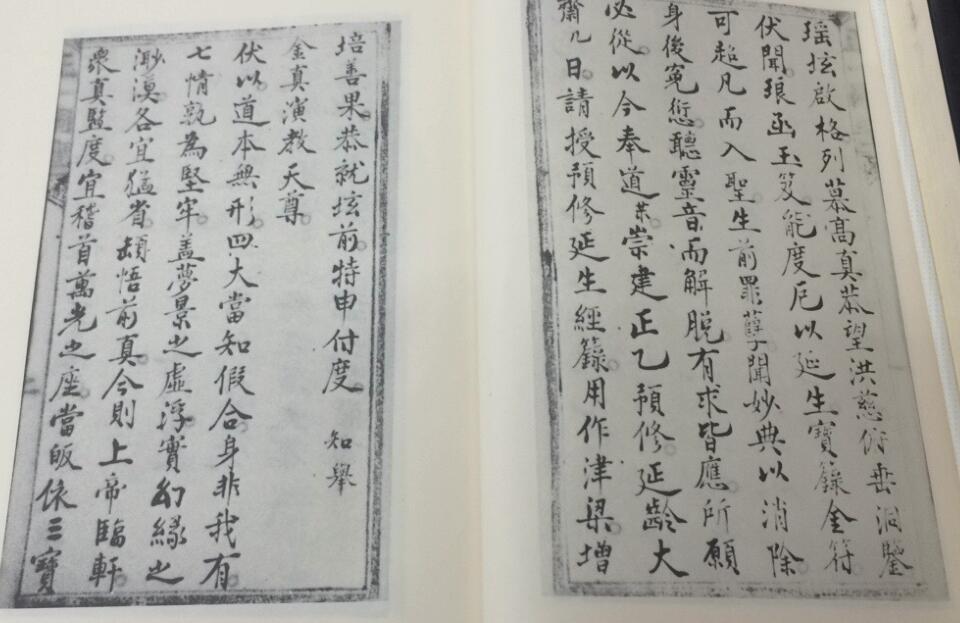 瑶坛啟格列幕高真恭望洪慈俯垂洞鑒
伏聞琅函玉笈能度厄以延生寶籙金符
可超凡而入聖生前罪孽聞妙典以消除
身後冤愆聽靈音而解脱有求皆應所願
必從以今奉道某崇建正乙預修延齡大
齋几日請授預修延生經籙用作津梁增
培善果恭就坛前特申付度　知舉
金真演教天尊
伏以道本無形四大當知假合身非我有
七情孰為堅牢盖夢景之虛浮實幻緣之
渺漠各宜猛省頓悟前真今則上帝臨軒
衆真監度宜稽首萬光之座當皈依三寶